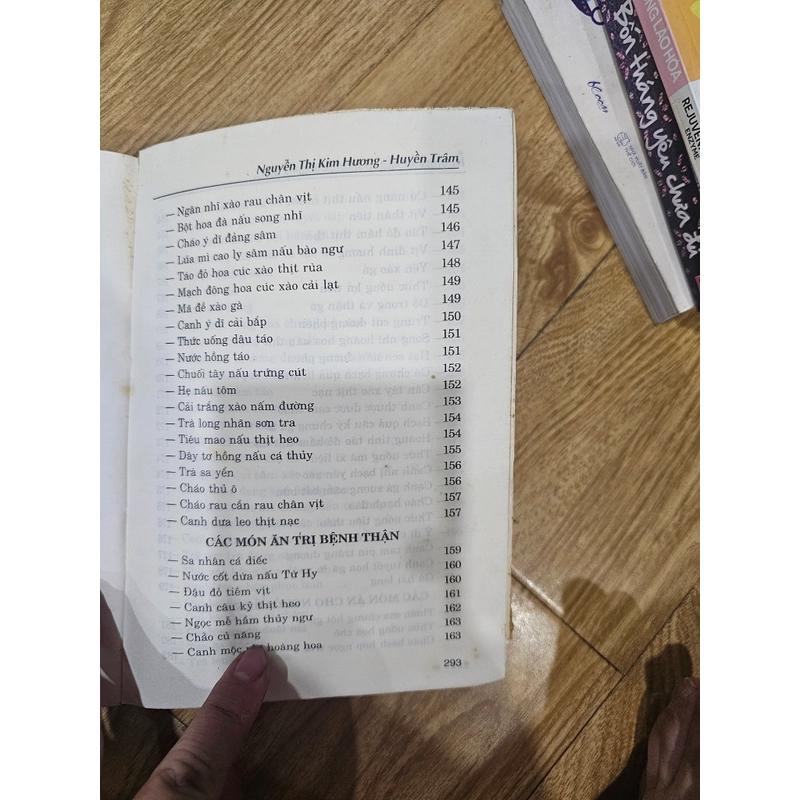 Nguyễn Thị Kim Hương - Huyền Trâm
— Ngân nhĩ xào rau chân vịt 145
— Bột hoa đà nấu song nhĩ 145
— Cháo ý dĩ đảng sâm 146
— Lúa mì cao ly sâm nấu bào ngư 147
— Táo đỏ hoa cúc xào thịt rùa 148
— Mạch đông hoa cúc xào cải lạt 149
— Mã đề xào gà 149
— Canh ý dĩ cải bắp 150
— Thức uống dâu táo 151
— Nước hồng táo 151
— Chuối tây nấu trứng cút 152
— Hẹ nấu tôm 152
— Cải trắng xào nấm đường 153
— Trà long nhãn sơn tra 154
— Tiêu mao nấu thịt heo 154
— Dây tơ hồng nấu cá thủy 155
— Trà sa yến 156
— Cháo thủ ô 156
— Cháo rau cần rau chân vịt 157
— Canh dưa leo thịt nạc 157
CÁC MÓN ĂN TRỊ BỆNH THẬN
— Sa nhân cá diếc 159
— Nước cốt dừa nấu Tử Hy 160
— Đậu đỏ tiềm vịt 160
— Canh câu kỷ thịt heo 161
— Ngọc mễ hầm thủy ngư 162
— Cháo củ năng 163
— Canh mộc hoàng hoa 163
293
Bốn tháng yên chưa đủ
NG LÃO HÓA
REJUVEN
ENZYME